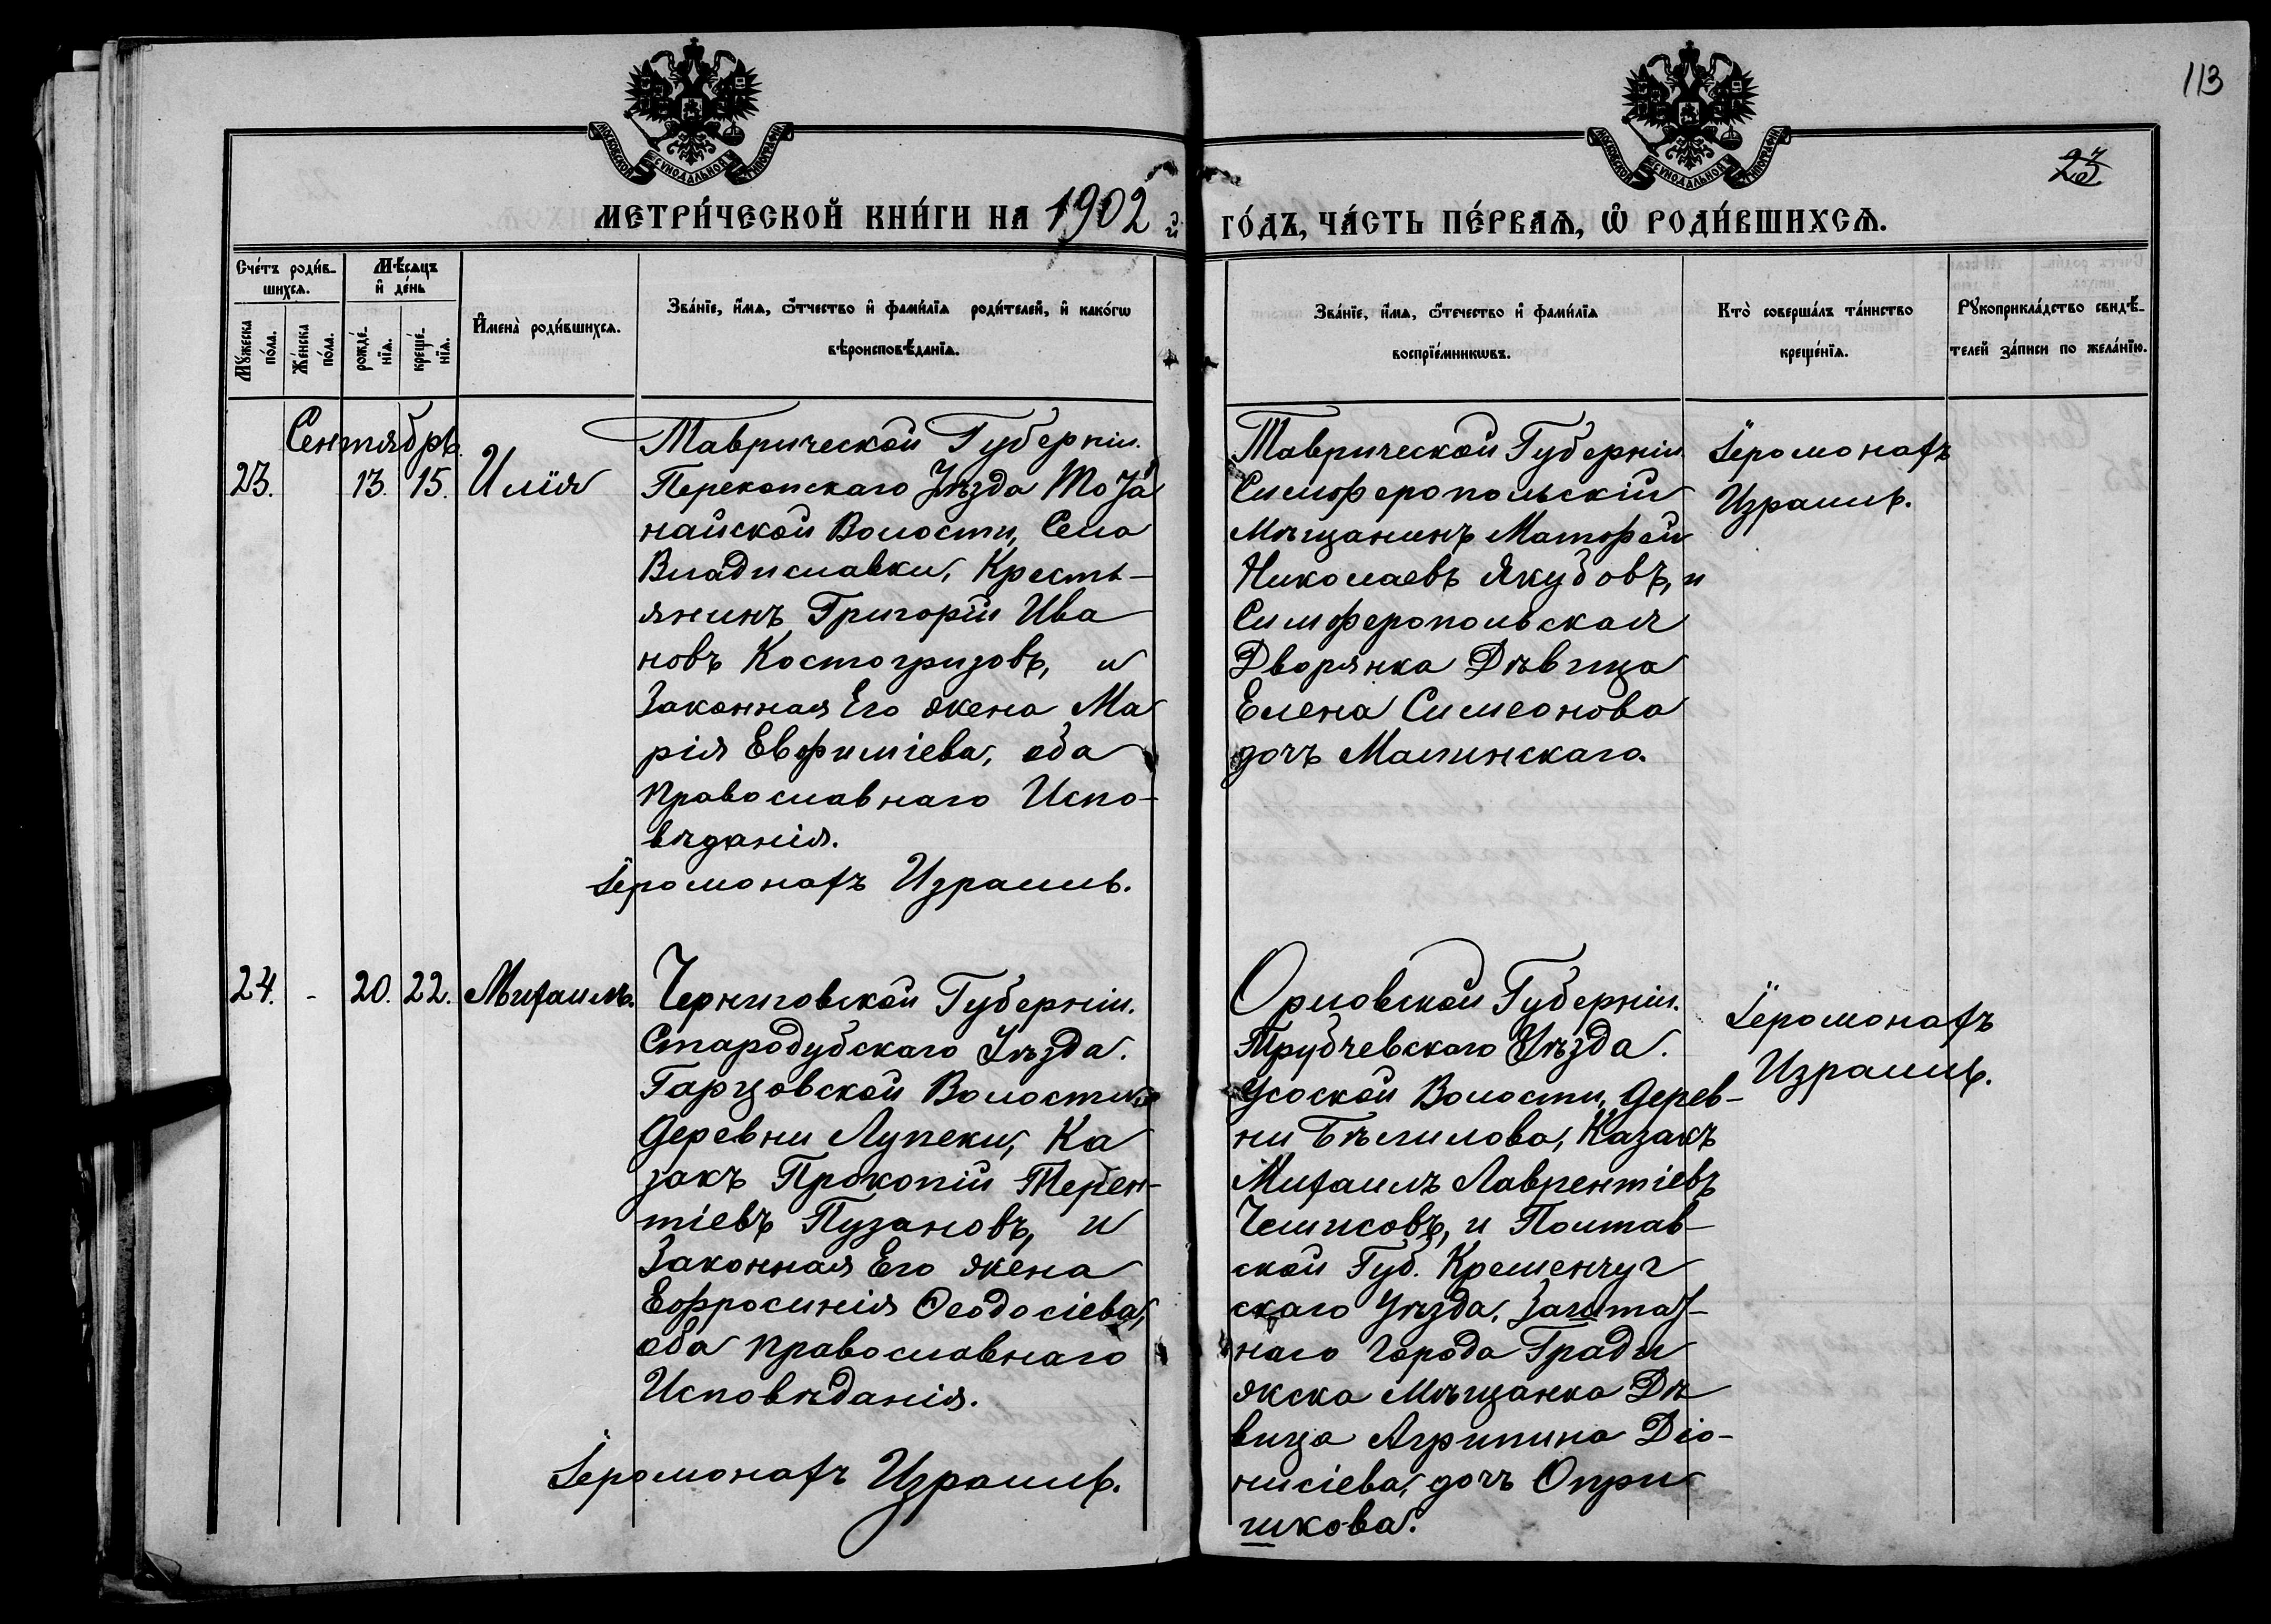 113
23
МОСКОВСКОЙ СѴНОДАЛЬНОЙ ТИПОГРАФІИ
МОСКОВСКОЙ СѴНОДАЛЬНОЙ ТИПОГРАФІИ
МЕТРИ́ЧЕСКОЙ КНИ́ГИ НА 1902 й ГО́ДЪ, ЧА́СТЬ ПЕ́РВАѦ, Ѡ҆ РОДИ́ВШИХСѦ.
Сче́тъ роди́в-
шихсѧ.
Мѣ́сѧцъ
и҆ де́нь
Мꙋ́жеска по́ла.
Же́нска по́ла.
рожде́нїѧ.
креще́нїѧ.
И҆мена̀ роди́вшихсѧ.
Зва́нїе, и҆́мѧ, ѻ҆́тчество и҆ фами́лїѧ роди́телей, и҆ како́гѡ
вѣроисповѣ́данїѧ.
Зва́нїе, и҆́мѧ, ѻ҆́течество и҆ фами́лїѧ
воспрїе́мникѡвъ.
Кто̀ соверша́лъ та́инство
креще́нїѧ.
Рꙋкоприкла́дство свидѣ́-
телей за́писи по жела́нїю.
Сентябрь.
23. 13. 15. Илія
Таврической Губерніи.
Перекопскаго Уѣзда
найской Волости, Села
Владиславки, Кресть-
янинъ Григорій Ива
новъ Костогризовъ, и
Законная Его жена Ма
рія Евфиміева, оба
Православнаго Испо-
вѣданія.
Іеромонахъ Израиль.
Таврической Губерніи
Симферопольскій
Мѣщанинъ Матфей
Николаевъ Якубовъ, и
Симферопольская
Дворянка Дѣвица
Елена Симеонова
дочь Малинскаго.
Іеромонахъ
Израиль.
24. - 20. 22. Михаилъ.
Черниговской Губерніи.
Стародубскаго Уѣзда.
Гарцовской Волости
Деревни Лупеки, Ка
закъ Прокопій Терен-
тіевъ Пузановъ, и
Законная Его жена
Ефросинія Ѳеодосіева,
оба Православнаго
Исповѣданія.
Іеромонахъ Израиль.
Орловской Губерніи.
Трубчевскаго Уѣзда.
Усоской Волости, Дерев-
ни Бѣлилова, Казакъ
Михаилъ Лаврентіевъ
Чемисовъ, и Полтав-
ской Губ. Кременчуг
скаго Уѣзда, Заштат-
наго Города Гради
жска Мѣщанка Дѣ
вица Агрипина Діо-
нисіева, дочь Опри
шкова.
Іеромонахъ
Израиль.